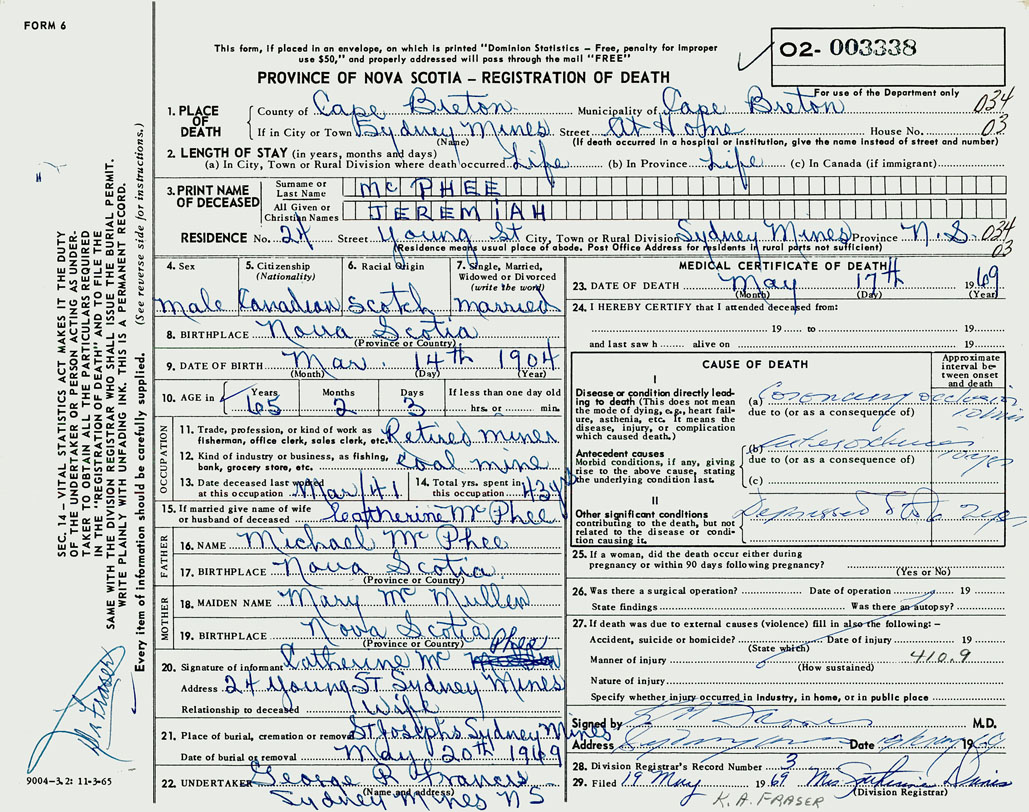 FORM 6
This form, if placed in an envelope, on which is printed "Dominion Statistics – Free, penalty for improper
use $50," and properly addressed will pass through the mail "FREE"
PROVINCE OF NOVA SCOTIA – REGISTRATION OF DEATH
02- 003338
For use of the Department only
034
03
1. PLACE OF DEATH
County of Cape Breton Municipality of Cape Breton
If in City or Town Sydney Mines Street At Home House No.
(Name) (If death occurred in a hospital or institution, give the name instead of street and number)
2. LENGTH OF STAY (in years, months and days)
(a) In City, Town or Rural Division where death occurred Life (b) In Province Life (c) In Canada (if immigrant)
3. PRINT NAME OF DECEASED
Surname or Last Name MC PHEE
All Given or Christian Names JEREMIAH
RESIDENCE No. 24 Street Young St City, Town or Rural Division Sydney Mines Province N.S. 034
03
(Residence means usual place of abode. Post Office Address for residents in rural parts not sufficient)
4. Sex
male
5. Citizenship (Nationality)
Canadian
6. Racial Origin
Scotch
7. Single, Married, Widowed or Divorced (write the word)
married
8. BIRTHPLACE Nova Scotia
(Province or Country)
9. DATE OF BIRTH Mar. 14th 1904
(Month) (Day) (Year)
10. AGE in
Years 65
Months 2
Days 3
If less than one day old
hrs. or min.
OCCUPATION
11. Trade, profession, or kind of work as
fisherman, office clerk, sales clerk, etc. Retired miner
12. Kind of industry or business, as fishing,
bank, grocery store, etc. Coal mine
13. Date deceased last worked
at this occupation Mar/41
14. Total yrs. spent in
this occupation 43 yrs
15. If married give name of wife
or husband of deceased Catherine Mc Phee
FATHER
16. NAME Michael Mc Phee
17. BIRTHPLACE Nova Scotia
(Province or Country)
MOTHER
18. MAIDEN NAME Mary Mc Mullen
19. BIRTHPLACE Nova Scotia
(Province or Country)
20. Signature of informant Catherine Mc Phee
Address 24 Young St Sydney Mines
Relationship to deceased Wife
21. Place of burial, cremation or removal St Josephs Sydney Mines
Date of burial or removal May 20th 1969
22. UNDERTAKER George R Francis
(Name and address)
Sydney Mines N S
MEDICAL CERTIFICATE OF DEATH
23. DATE OF DEATH May 17th 1969
(Month) (Day) (Year)
24. I HEREBY CERTIFY that I attended deceased from:
19 to 19
and last saw h alive on 19
CAUSE OF DEATH
Approximate interval between onset and death
I
Disease or condition directly leading to death (This does not mean the mode of dying, e.g., heart failure, asthenia, etc. It means the disease, injury, or complication which caused death.)
(a) Coronary occlusion
due to (or as a consequence of)
Antecedent causes
Morbid conditions, if any, giving rise to the above cause, stating the underlying condition last.
(b)
due to (or as a consequence of)
(c)
II
Other significant conditions
contributing to the death, but not related to the disease or condition causing it.
Depressed
25. If a woman, did the death occur either during
pregnancy or within 90 days following pregnancy?
(Yes or No)
26. Was there a surgical operation? Date of operation 19
State findings Was there an autopsy?
27. If death was due to external causes (violence) fill in also the following: –
Accident, suicide or homicide? Date of injury 19
(State which)
Manner of injury 410.9
(How sustained)
Nature of injury
Specify whether injury occurred in Industry, in home, or in public place
Signed by M.D.
Address Date 19
28. Division Registrar's Record Number 3
29. Filed 19 May 1969 Mrs
(Division Registrar)
K. A. FRASER
SEC. 14 – VITAL STATISTICS ACT MAKES IT THE DUTY
OF THE UNDERTAKER OR PERSON ACTING AS UNDER-
TAKER TO OBTAIN ALL THE PARTICULARS REQUIRED
IN THE "REGISTRATION OF DEATH" AND TO FILE THE
SAME WITH THE DIVISION REGISTRAR WHO SHALL ISSUE THE BURIAL PERMIT.
WRITE PLAINLY WITH UNFADING INK. THIS IS A PERMANENT RECORD.
Every item of information should be carefully supplied. (See reverse side for instructions.)
9004-3.2: 11-3-65